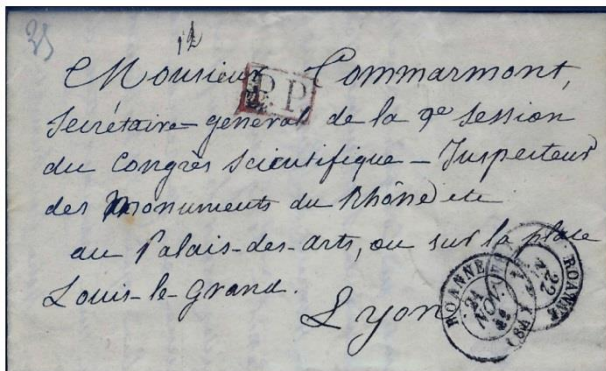 25
12
Monsieur Commarmont,
P.P.
Secrétaire-général de la 9e session
du Congrès scientifique – Inspecteur
des Monuments du Rhône etc
au Palais-des-arts, ou sur la place
Louis-le-Grand.
Lyon
ROANNE
ROANNE